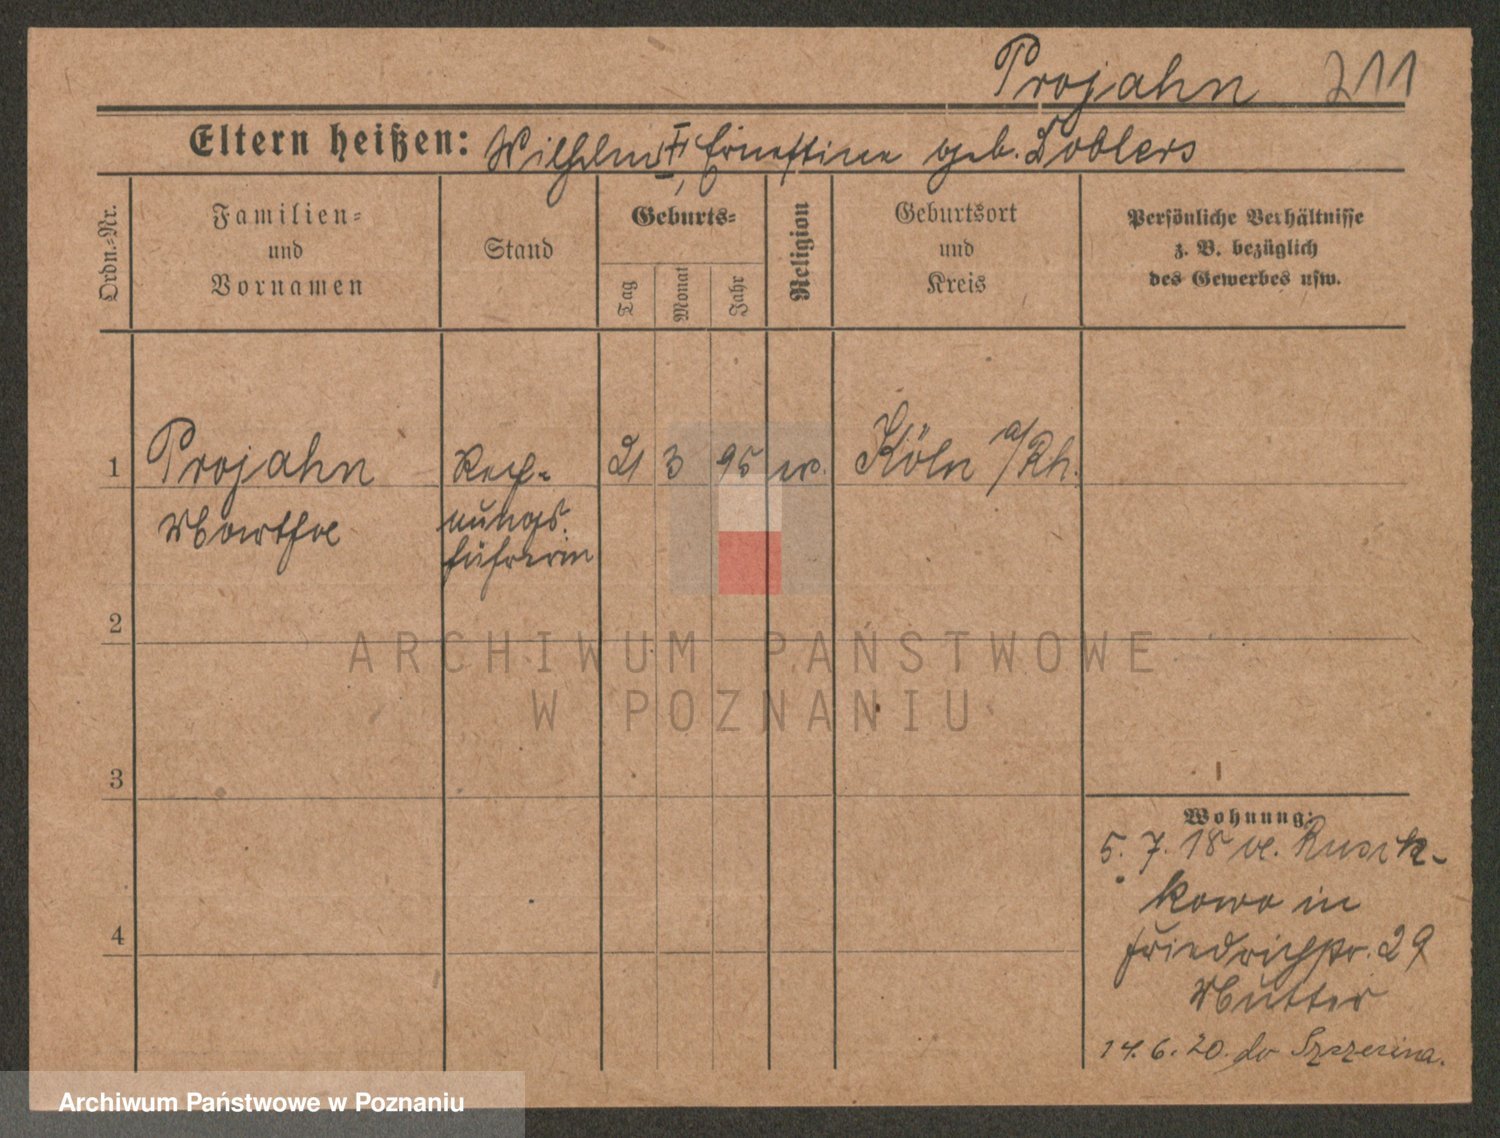 Projahn 211
Eltern heißen: Wilhelm †, Ernestine geb. Doblers
Ordn.-Nr.
Familien-
und
Vornamen
Stand
Geburts-
Tag
Monat
Jahr
Religion
Geburtsort
und
Kreis
Persönliche Verhältnisse
z. B. bezüglich
des Gewerbes usw.
1 Projahn Rech- 21 3 95 ev. Köln a/Rh.
Marthe nungs-
führerin
2
3
4
Wohnung:
5. 7. 18 v.
kowo in
Friedrichstr. 29
Mutter
14. 6. 20. do Szczecina.
ARCHIWUM PAŃSTWOWE
W POZNANIU
Archiwum Państwowe w Poznaniu